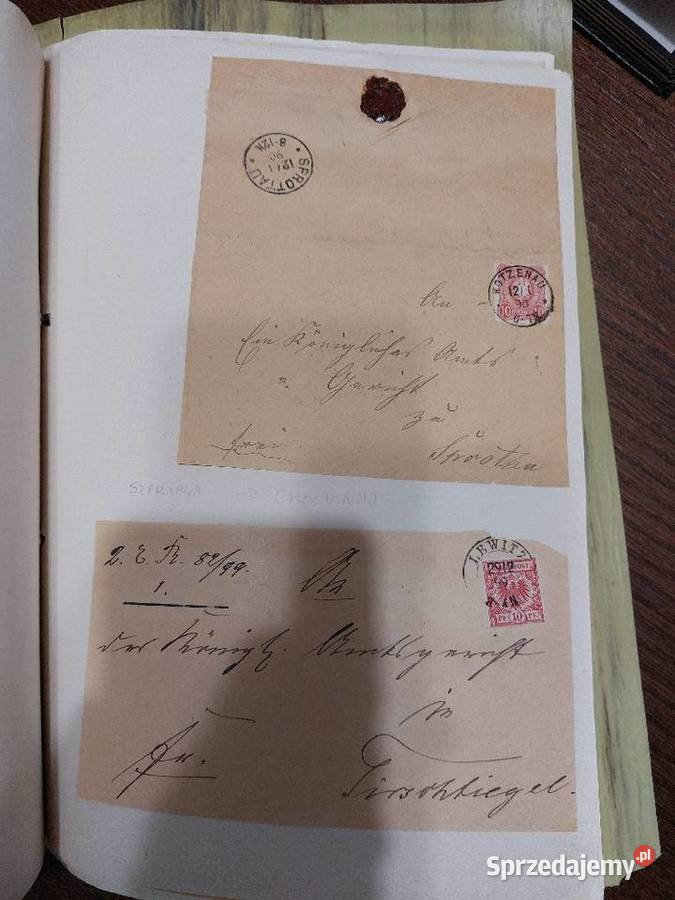 SPROTTAU
12/1
90
8-12N.
KOTZENAU
12/1
90
10 10
An
Ein Königliches Amts
Gericht
zu
Sprottau
frei
SZPROTAWA → CHOCIANÓW
LEWITZ
29/12
POST
PF. 10 PF.
2. E. R. 82/99
1.
An
das Königl. Amtsgericht
in
Fr.
Tirschtiegel.
Sprzedajemy.pl